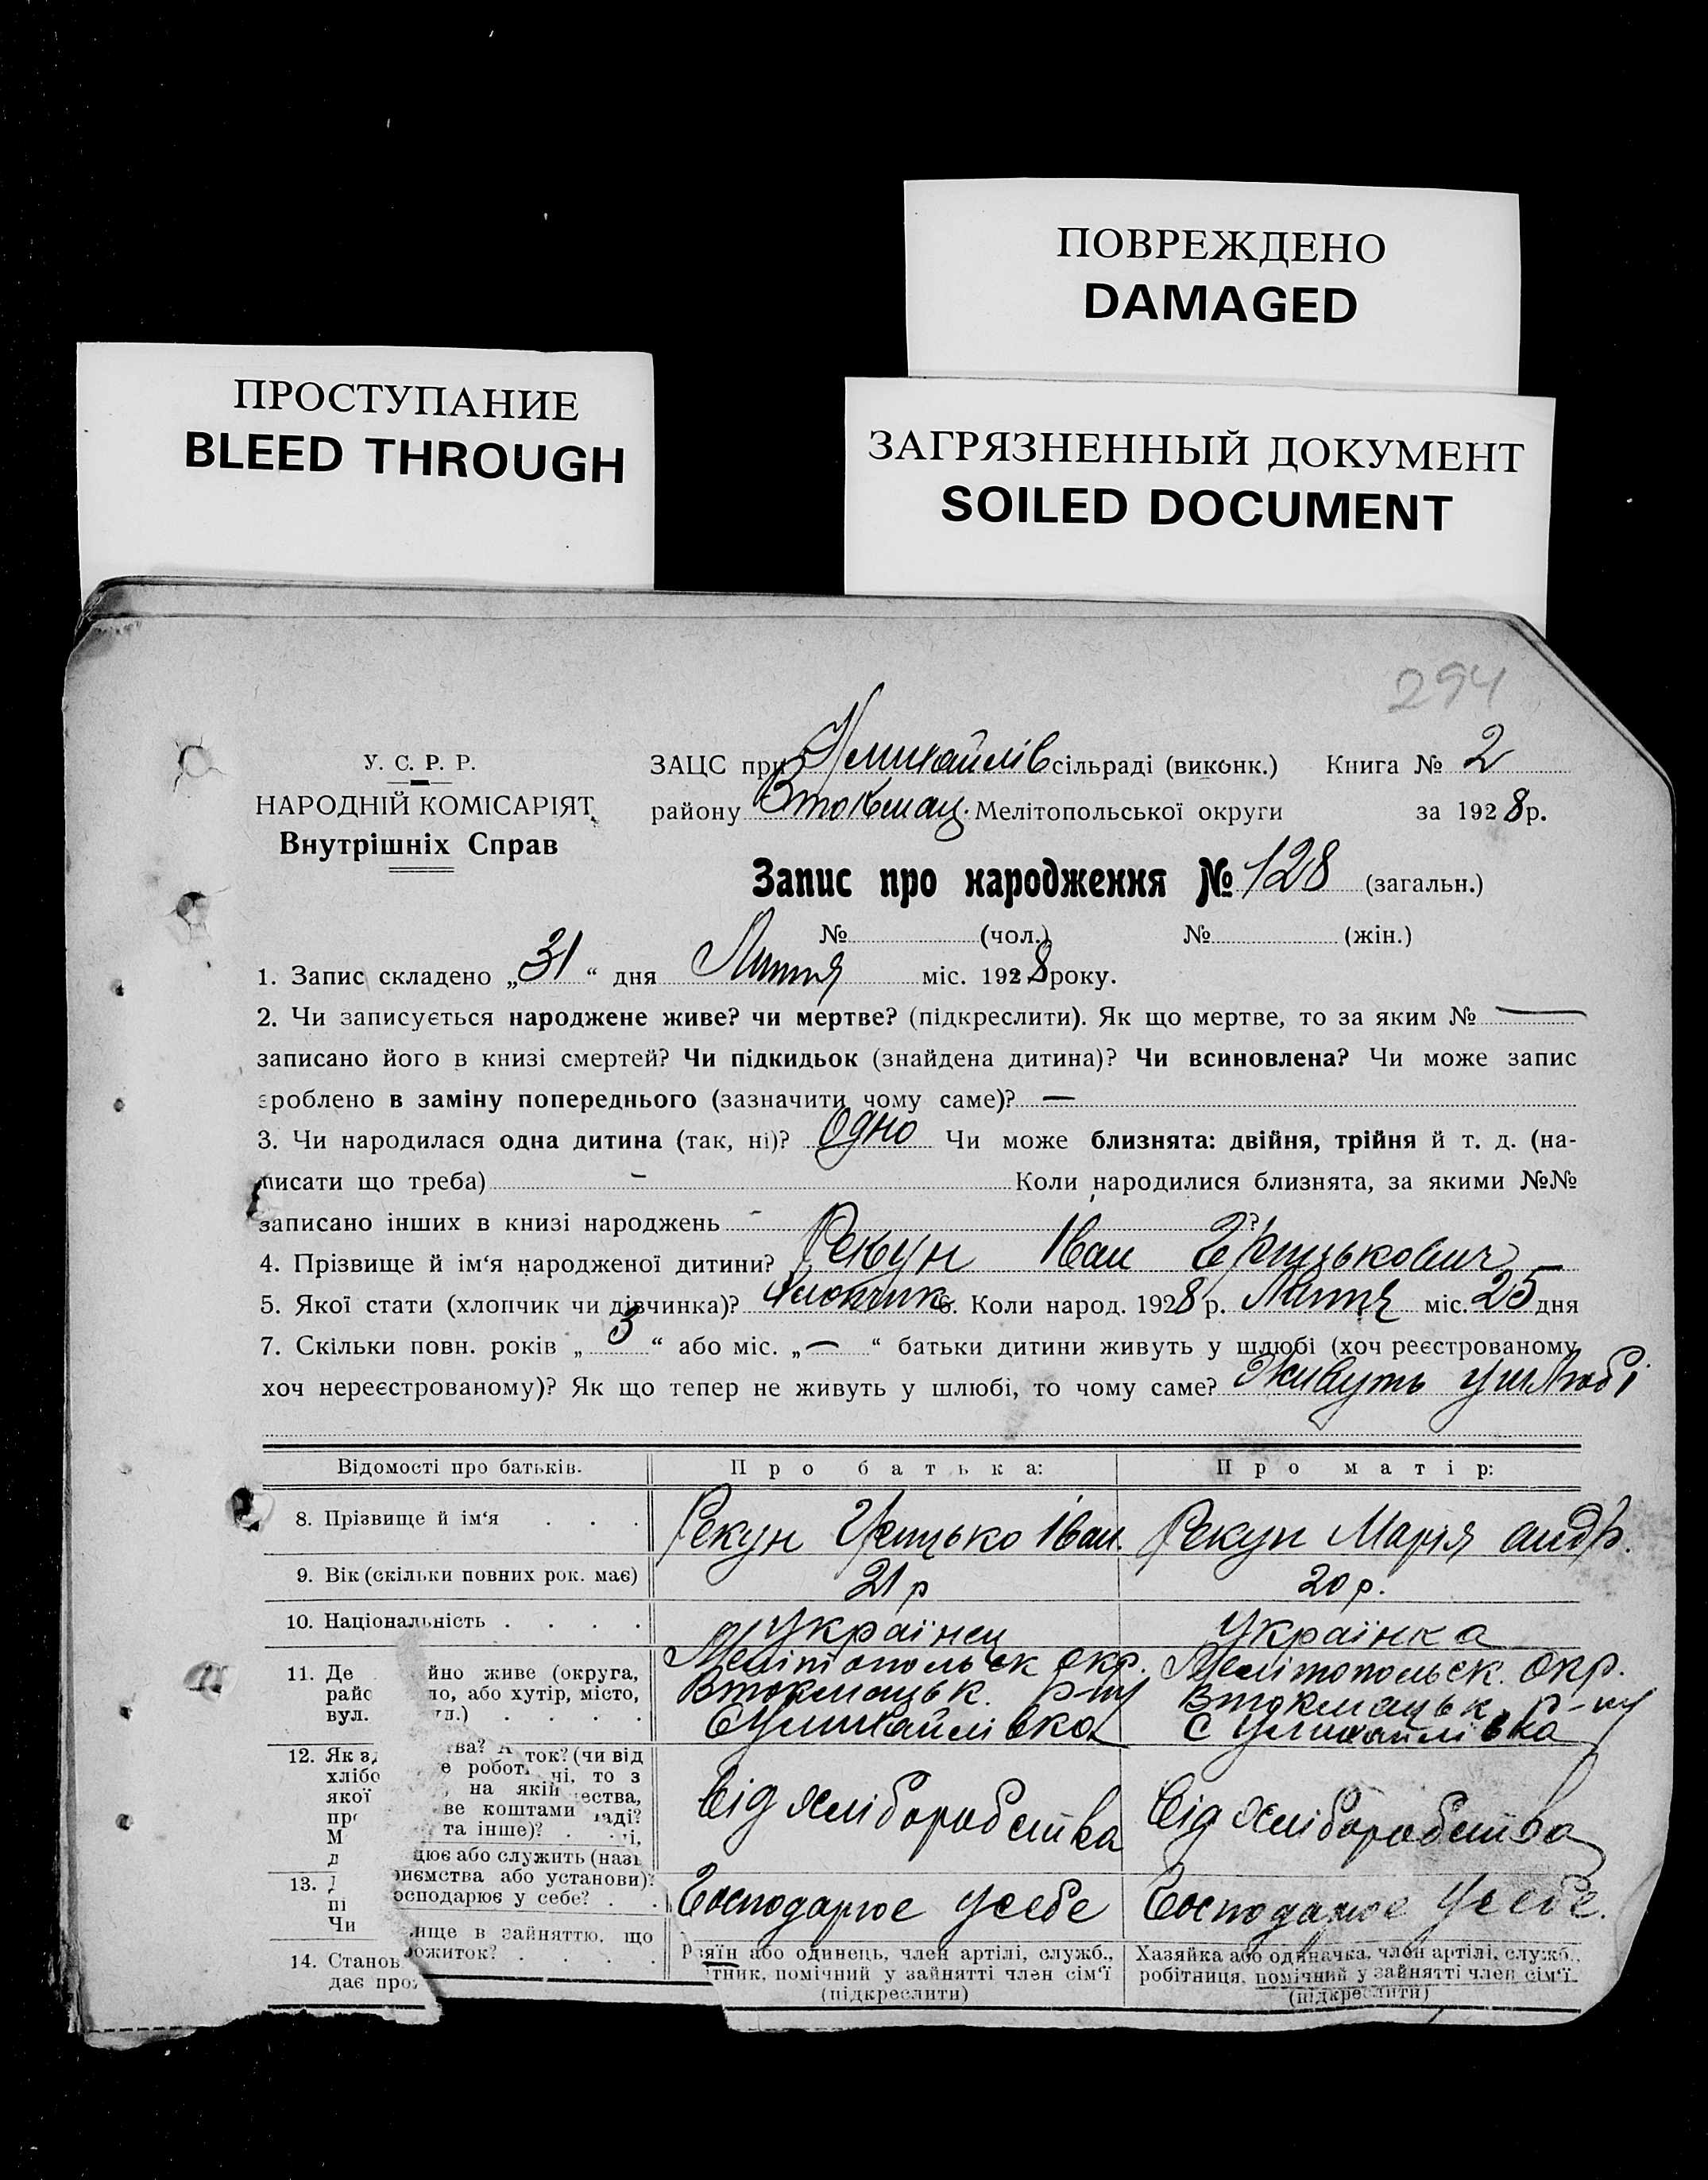 ПОВРЕЖДЕНО
DAMAGED
ПРОСТУПАНИЕ
BLEED THROUGH
ЗАГРЯЗНЕННЫЙ ДОКУМЕНТ
SOILED DOCUMENT
294
У. С. Р. Р.
НАРОДНІЙ КОМІСАРІЯТ
Внутрішніх Справ
ЗАЦС при сільраді (виконк.) Книга № 2
району Втокмац. Мелітопольської округи за 1928 р.
Запис про народження № 128 (загальн.)
№ (чол.) № (жін.)
1. Запис складено „31“ дня Липня міс. 1928 року.
2. Чи записується народжене живе? чи мертве? (підкреслити). Як що мертве, то за яким № —
записано його в книзі смертей? Чи підкидьок (знайдена дитина)? Чи всиновлена? Чи може запис
зроблено в заміну попереднього (зазначити чому саме)? —
3. Чи народилася одна дитина (так, ні)? Одно Чи може близнята: двійня, трійня й т. д. (на-
писати що треба) – Коли народилися близнята, за якими №№
записано інших в книзі народжень – ?
4. Прізвище й ім‘я народженої дитини? Рекун Іван Грицькович
5. Якої стати (хлопчик чи дівчинка)? Хлопчик 6. Коли народ. 1928 р. Липня міс. 25 дня
7. Скільки повн. років „3“ або міс. „—“ батьки дитини живуть у шлюбі (хоч реєстрованому,
хоч нереєстрованому)? Як що тепер не живуть у шлюбі, то чому саме? Живуть ушлюбі
Відомості про батьків. Про батька: Про матір:
8. Прізвище й ім‘я . . . Рекун Грицько Іван. Рекун Марія андр.
9. Вік (скільки повних рок. має) 21 р 20 р.
10. Національність . . . . українец Українка
11. Де йно живе (округа, Мелітопольск окр. Мелітопольск. Окр.
райо ло, або хутір, місто, Втокмацьк. р-ну Втокмацьк. р-ну
вул. ул.) . . . .
12. Як з ва? ток? (чи від
хлібо е робот чі, то з
якої на якій ества,
пр ве коштами аді?
М та інше)? . . і, Від хліборобства Від хліборобства
д цює або служить (назі
13. риємства або установи)?
пі осподарює у себе? . . Господарює усебе Господарює Усебе.
Чи
14. Станов ище в зайняттю, що
дає про ожиток? . . . .
або одинець, член артілі, служб., Хазяйка або одиначка, член артілі, служб.,
тник, помічний у зайнятті член сім‘ї робітниця, помічний у зайнятті член сім‘ї.
(підкреслити) (підкреслити)